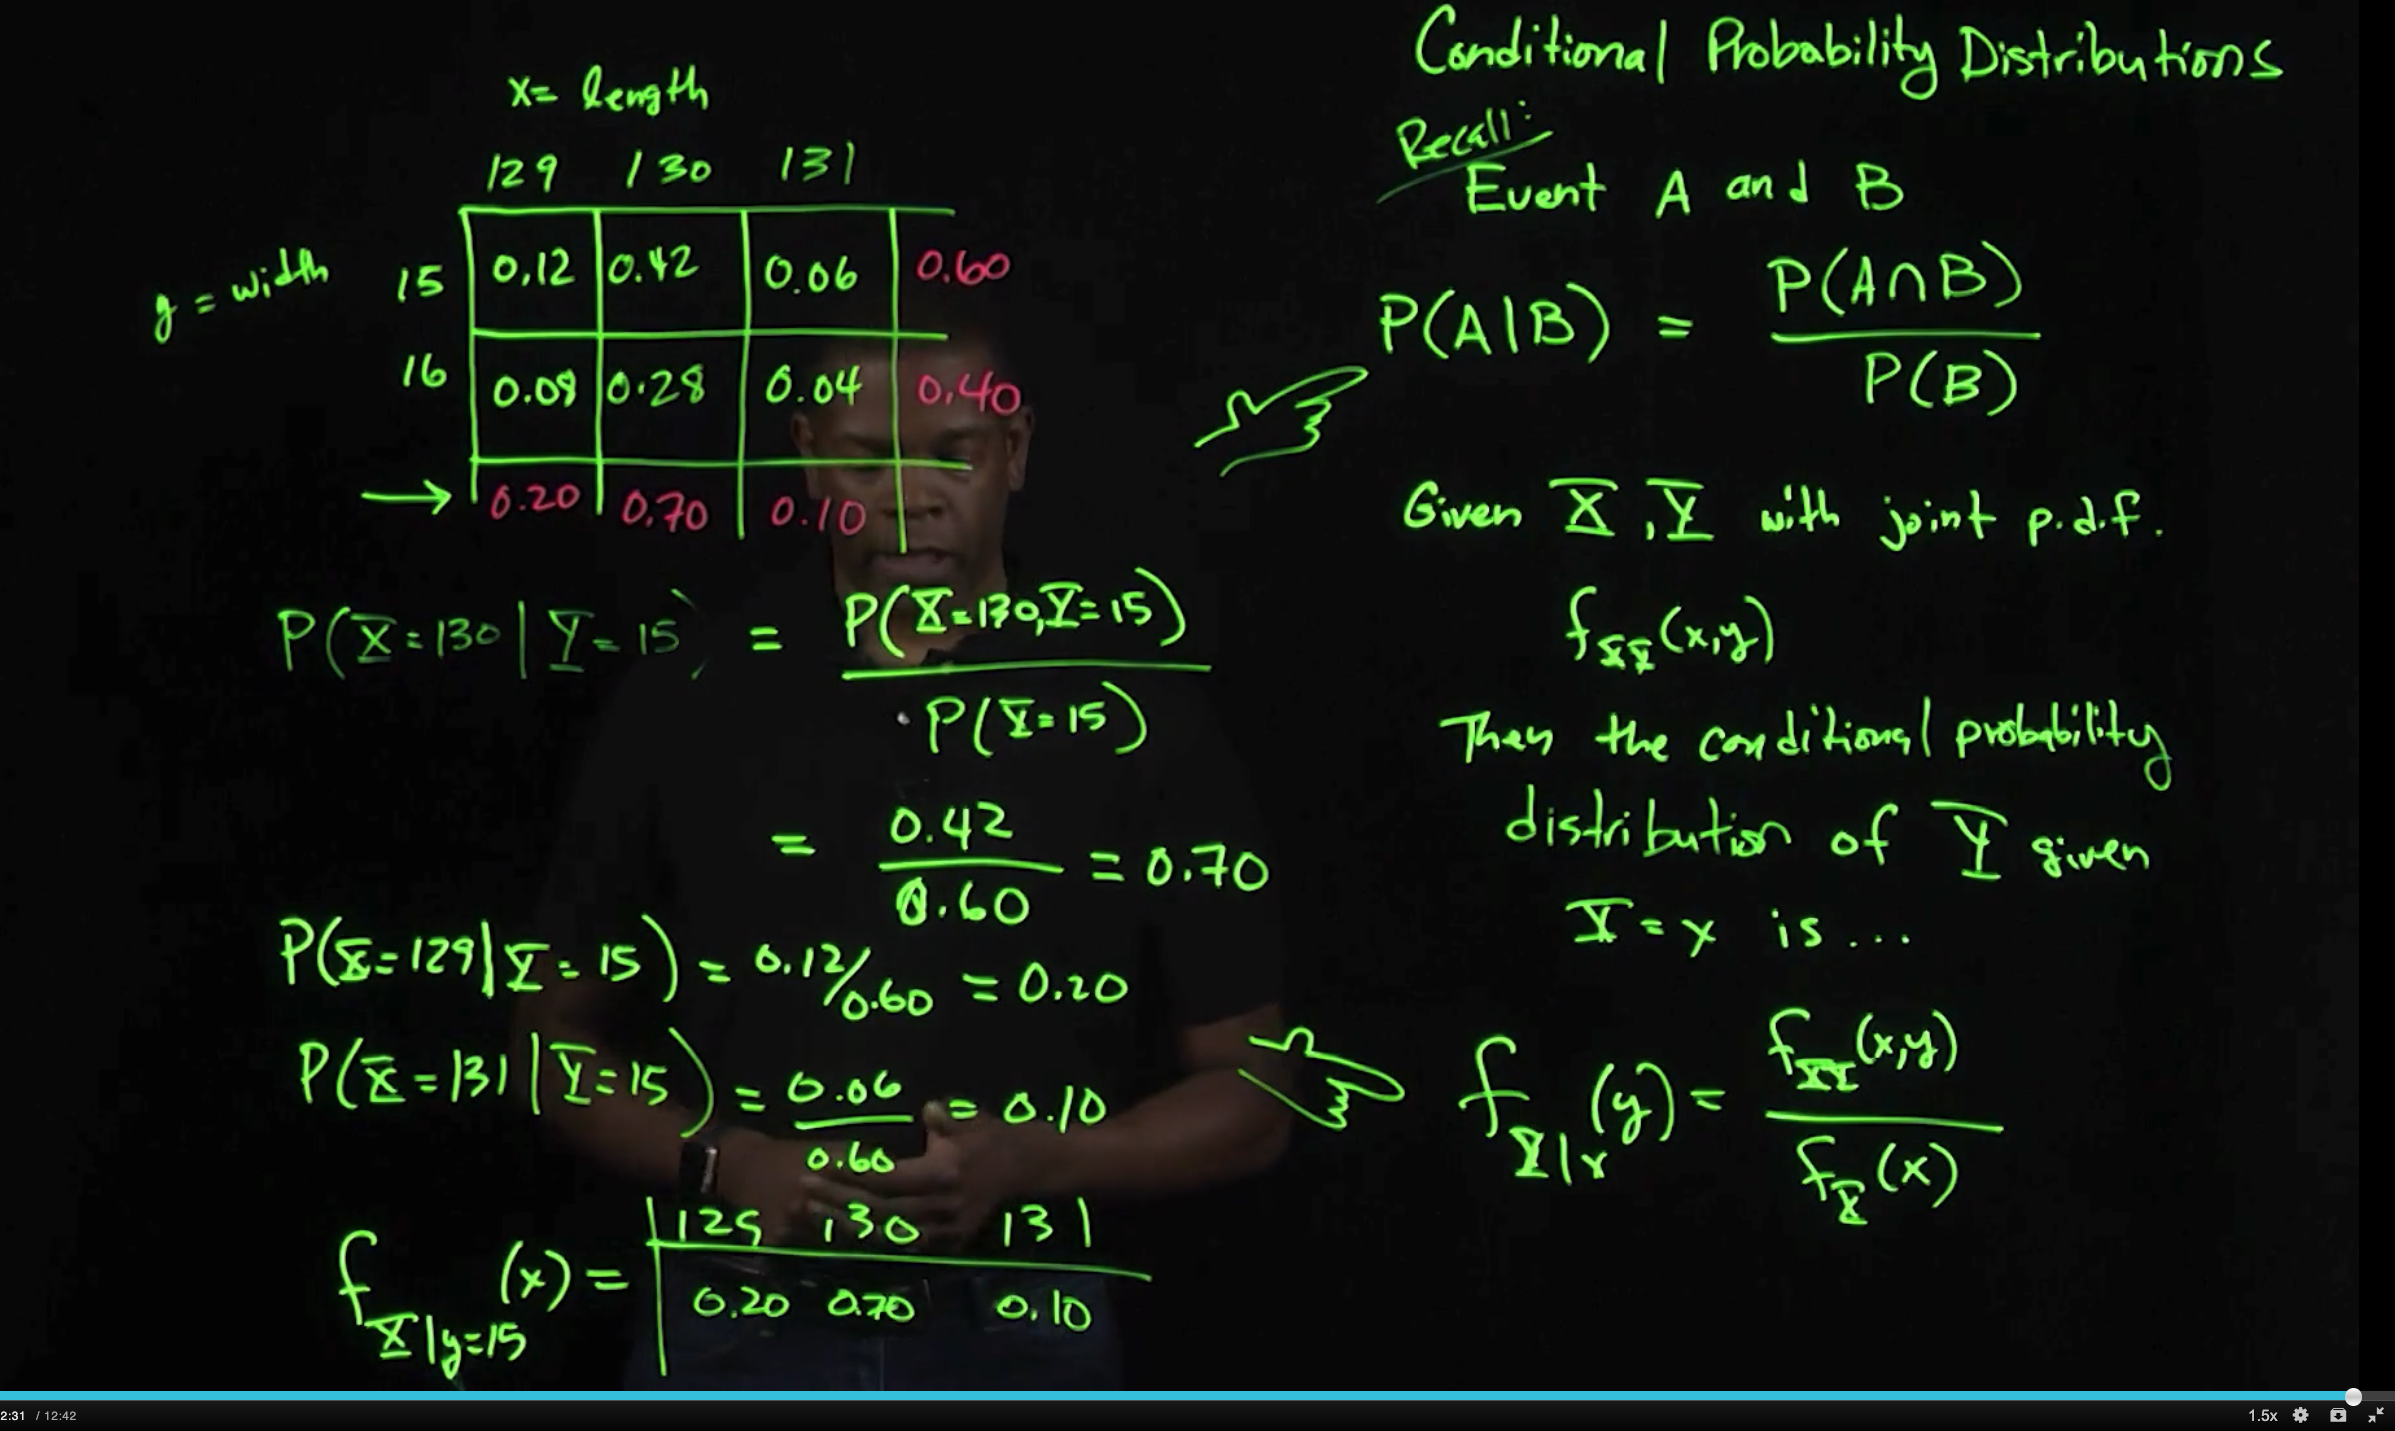 x= length
129 130 131
y = width
15 0.12 0.42 0.06 0.60
16 0.08 0.28 0.04 0.40
→ 0.20 0.70 0.10
P(X=130 | Y=15) = P(X=130,Y=15)
P(Y=15)
= 0.42 / 0.60 = 0.70
P(X=129|Y=15) = 0.12/0.60 = 0.20
P(X=131|Y=15) = 0.06 / 0.60 = 0.10
f X|y=15 (x) = 129 130 131
0.20 0.70 0.10
Conditional Probability Distributions
Recall:
Event A and B
P(A|B) = P(A∩B)
P(B)
Given X, Y with joint p.d.f.
f XY (x,y)
Then the conditional probability
distribution of Y given
X = x is ...
f Y|x (y) = f XY (x,y)
f X (x)
2:31 / 12:42
1.5x